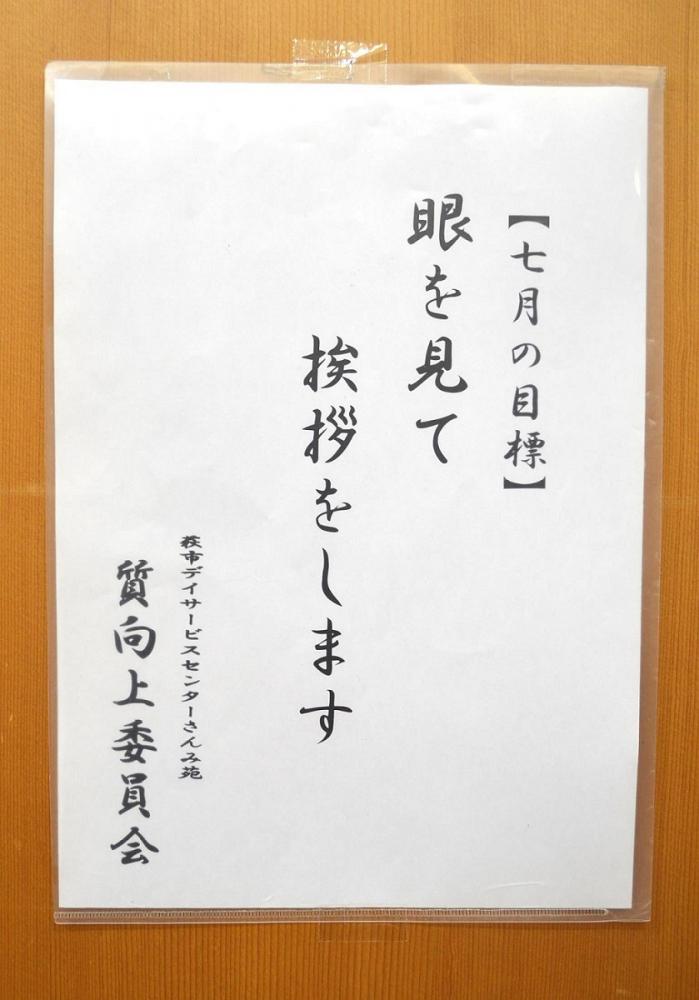 【七月の目標】
眼を見て
挨拶をします
萩市デイサービスセンターさんみ苑
質向上委員会